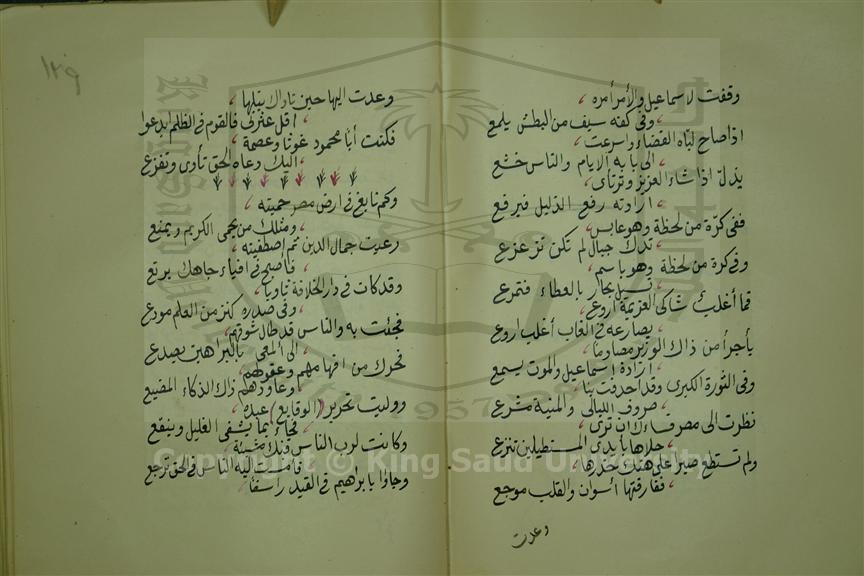 وقفت لاسماعيل والأمر أمره
وفى كفه سيف من البطش يلمع
اذا صاح لبّاه القضاء وأسرعت
الى بابه الأيام والناس خشع
يذلّ اذا شاء العزيز وترتأى
ارادته رفع الذليل فيرفع
ففى كرّة من لحظة وهو عابس
تدك جبال لم تكن تزعزع
وفى كرة من لحظة وهو باسم
تسيل بحار بالعطاء فتمرع
فما أغلب شاكى العزيمة أروع
يصارعه فى الغاب أغلب أروع
بأجرأ من ذاك الوزير مصادما
ارادة اسماعيل والموت يسمع
وفى الثورة الكبرى وقد أحدقت بنا
صروف الليالى والمنية مشرع
نظرت الى مصر فساءك ان ترى
حلاها بأيدى المستطيلين تنزع
ولم تستطع صبرا على هتك خدرها
ففارقتها أسوان والقلب موجع
وعدت
١٣٩
وعدت اليها حين ناداك نيلها
أقل عثرتى فالقوم فى الظلم ابدعوا
فكنت أبا محمود غوثا وعصمة
اليك دعاه الحق تأوى وتفزع
وكم نابغ فى ارض مصر حميته
ومثلك من يحمى الكريم ويمنع
رعيت جمال الدين ثم اصطفيته
فأصبح فى أفياء جاهك يرتع
وقد كان فى دار الخلافة ثاويا
وفى صدره كنز من العلم مودع
فجئت به والناس قد طال شوقهم
الى المعى بالبراهين يصدع
فحرك من افهامهم وعقولهم
وعاودهم ذاك الذكاء المضيع
ووليت تحرير (الوقايع) عبده
فجاء بما يشفى الغليل وينقع
وكانت لرب الناس فيك مشيئة
فأمست اليه الناس فى الحق ترجع
وجاؤا بابراهيم فى القيد راسفا
Copyright © King Saud University
1957